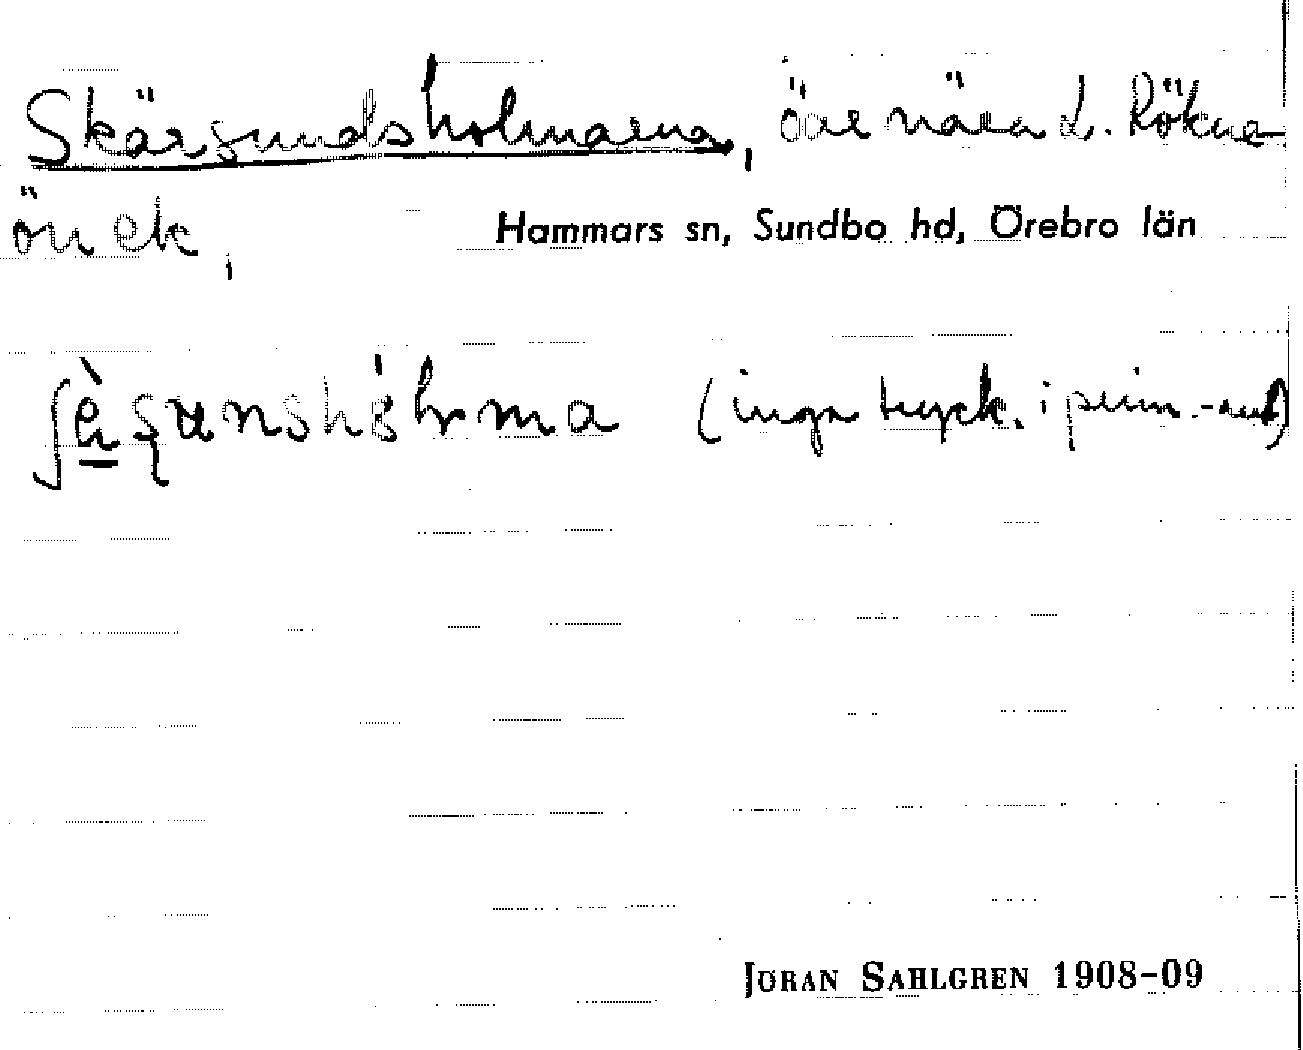 Skärsundsholmarna, öar nära L. Rökne
ön ek,
Hammars sn, Sundbo hd, Örebro län
(inga tryck. i prim.-
JÖRAN SAHLGREN 1908-09